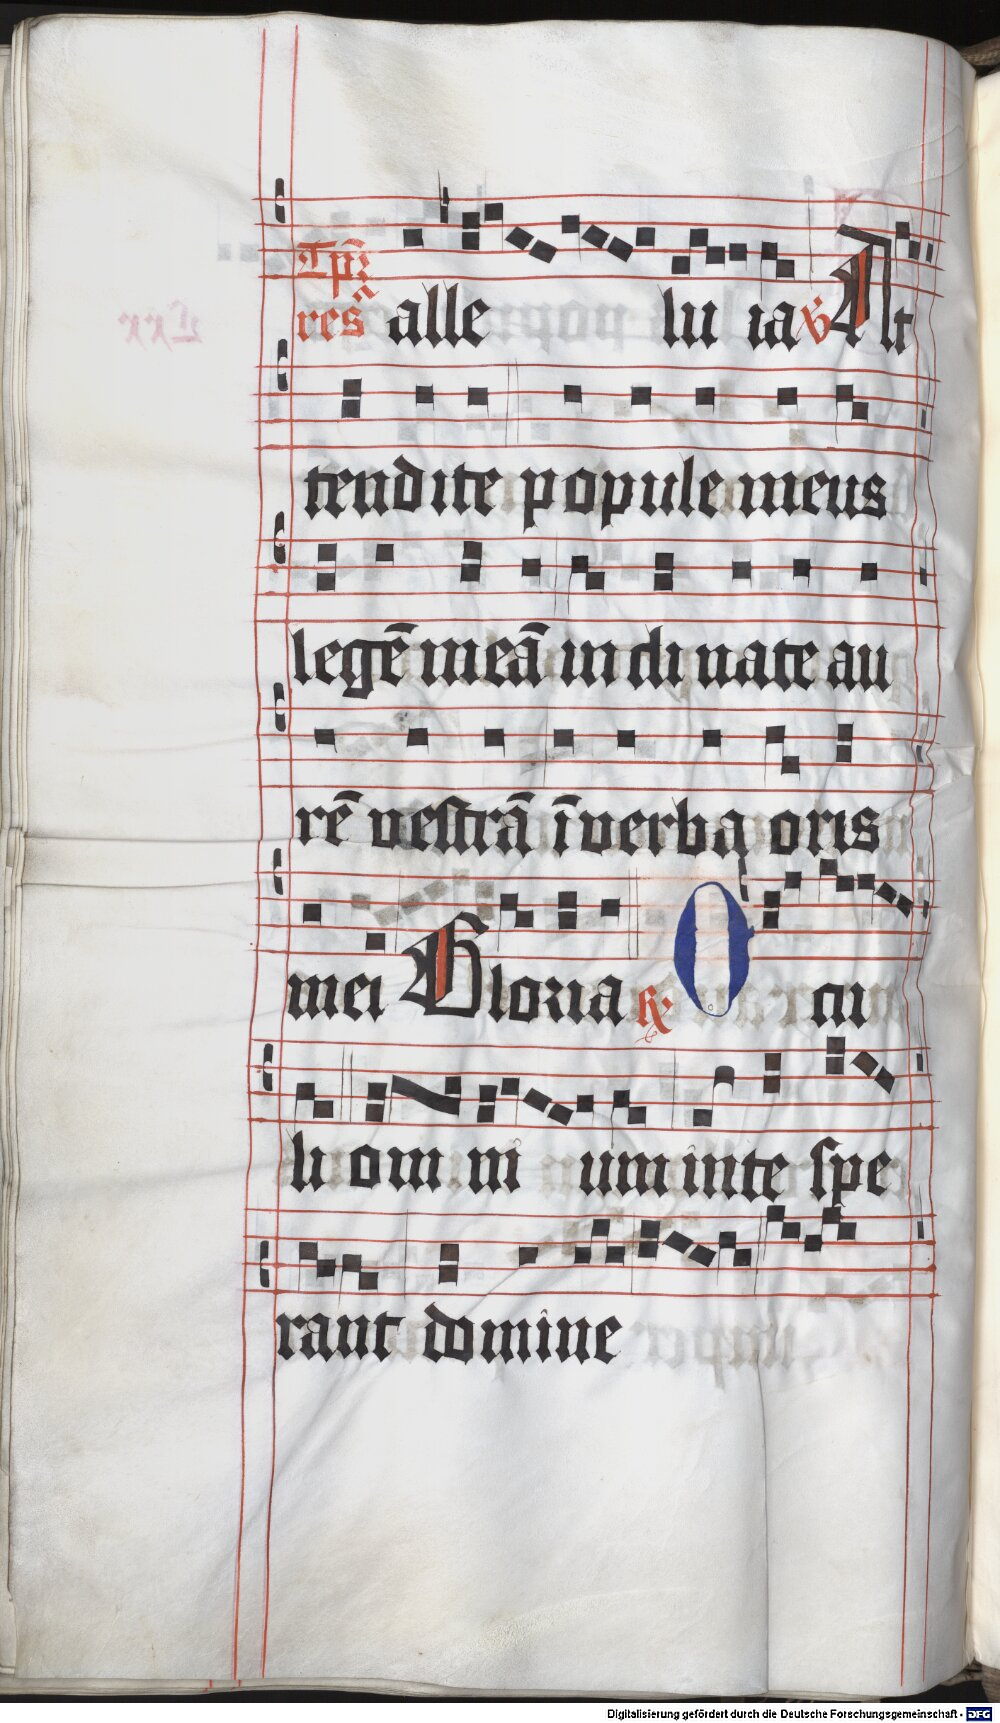 Tp̄r
resā alle lu ia ℣ At
tendite popule meus
legē meā inclinate au
rē vestrā ī verba oris
mei Gloria ℟ O cu
li om ni um in te spe
rant domine
Digitalisierung gefördert durch die Deutsche Forschungsgemeinschaft - DFG